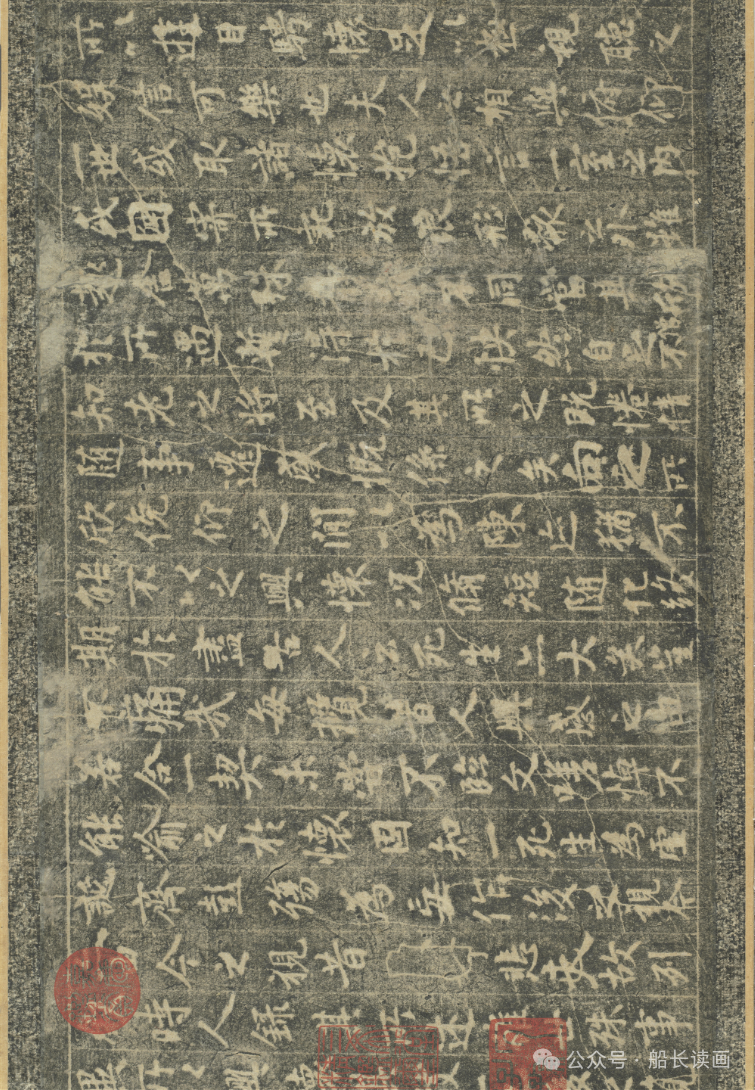 所以遊目騁懷足以極視聽之
娛信可樂也夫人之相與俯仰
一世或取諸懷抱悟言一室之內
或因寄所託放浪形骸之外雖
趣舍萬殊不同當其欣
於所遇暫得於己快然自足不
知老之將至及其所之既惓情
隨事遷感慨係之矣向之所
欣俛仰之間以為陳迹猶不
能不以之興懷況脩短隨化終
期於盡古人云死生亦大矣豈
不痛哉每攬昔人興感之由
若合一契未嘗不臨文嗟悼不
能喻之於懷固知一死生為虛
誕齊彭殤為妄作後之視今
今之視昔悲夫故列
時人錄其所述殊事
公众号 · 船长读画